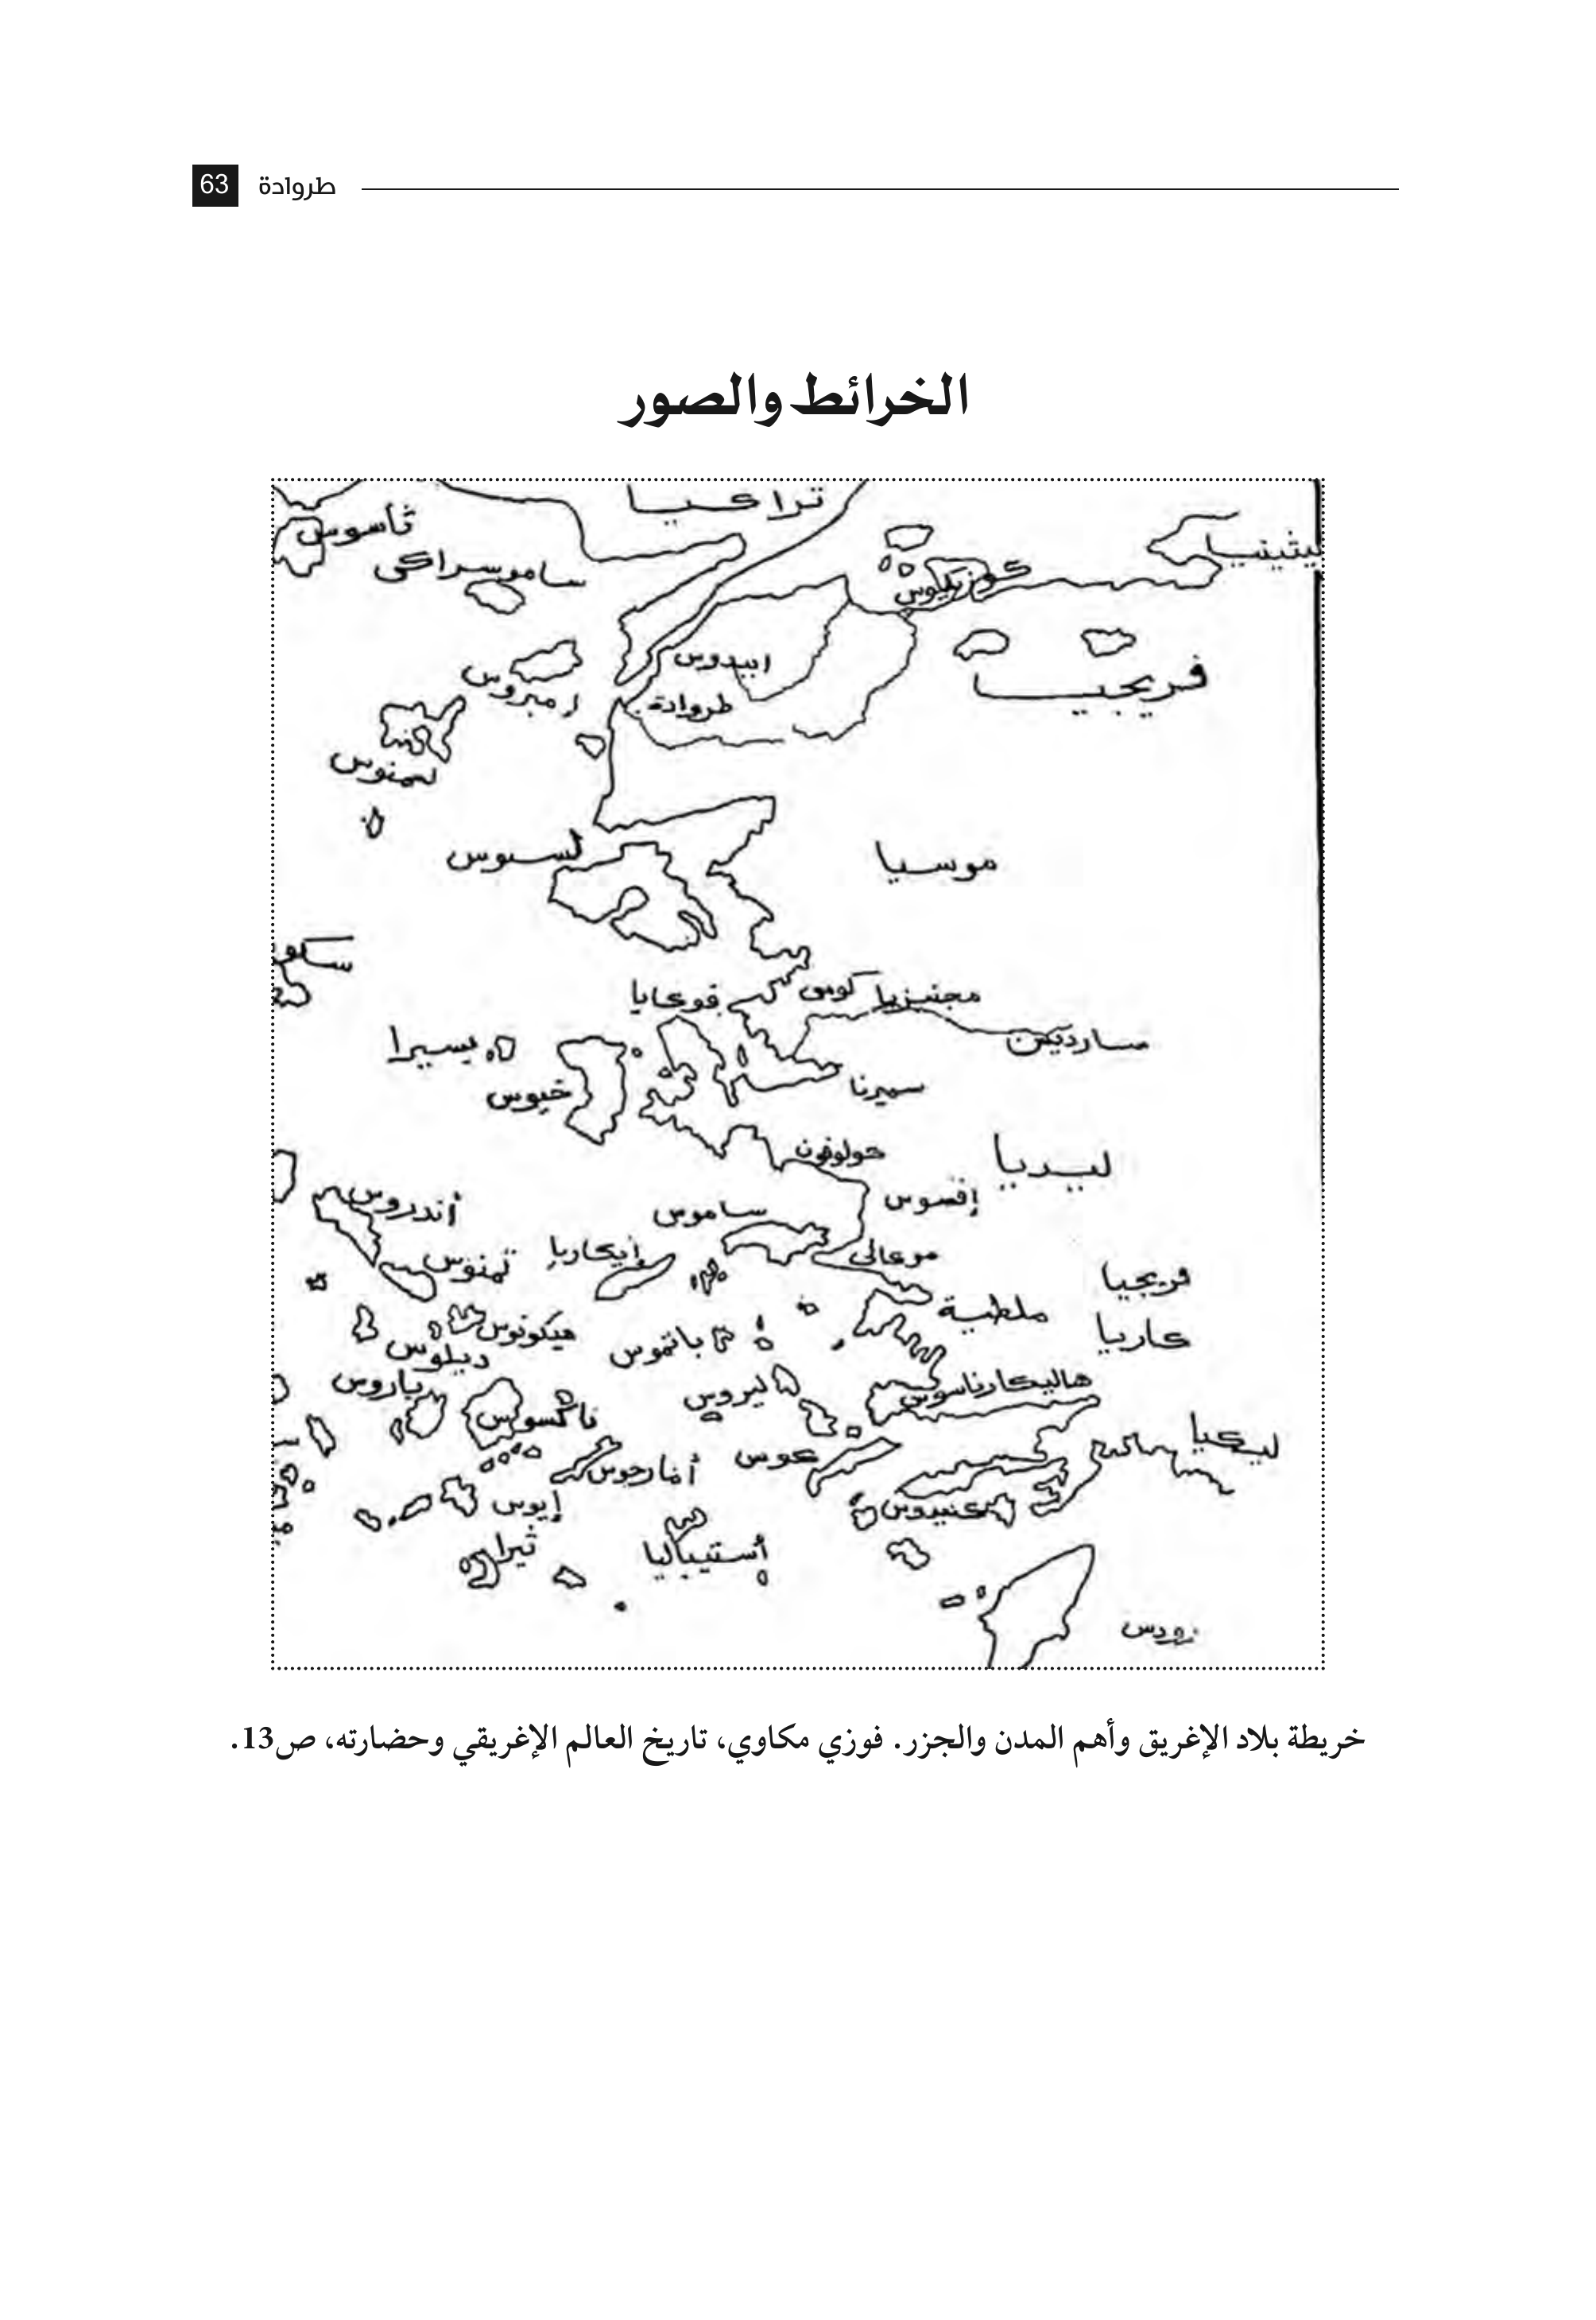 طروادة 63
الخرائط والصور
تراكيا
ثأسوس
ساموسراكى
كوزيكيوس
فريجيا
ابيدوس
امبروس
طروادة
لمنوس
لسبوس
موسيا
مجنيزيا
كومى
فوكايا
سميرنا
بسيرا
خيوس
كولوفون
ليديا
إفسوس
أندروس
ساموس
إيكاريا
تمنوس
موكالى
فريجيا
ملطية
كاريا
ميكونوس
باتموس
ديلوس
هاليكارناسوس
باروس
ليروس
ناكسوس
ليكيا
كوس
أمارجوس
إيوس
كنيدوس
ثيرا
أستيباليا
خريطة بلاد الإغريق وأهم المدن والجزر. فوزي مكاوي، تاريخ العالم الإغريقي وحضارته، ص13.